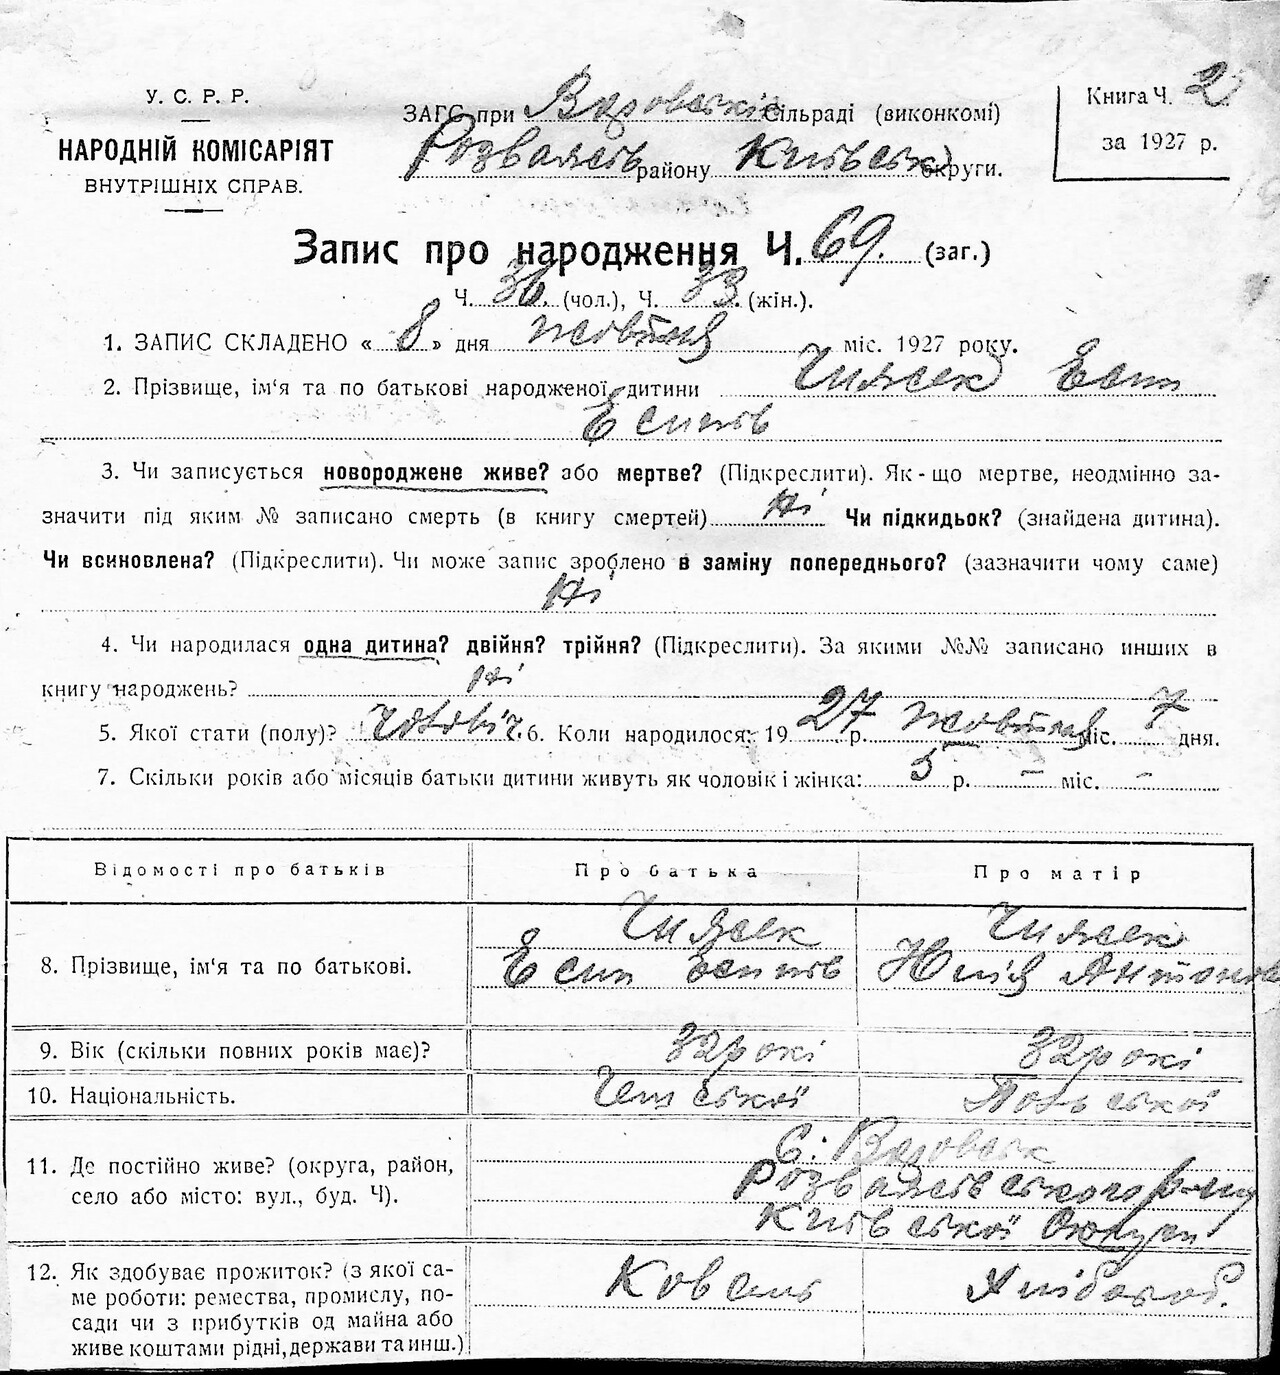 У. С. Р. Р.
НАРОДНІЙ КОМІСАРІЯТ
ВНУТРІШНІХ СПРАВ.
ЗАГС при Вяровській Сільраді (виконкомі)
Розважів району Київськ округи.
Книга Ч. 2
за 1927 р.
Запис про народження Ч. 69. (заг.)
Ч. 36. (чол.), Ч. 33. (жін.).
1. ЗАПИС СКЛАДЕНО « 8 » дня жовтня міс. 1927 року.
2. Прізвище, ім'я та по батькові народженої дитини Чижек Есип
Есипів
3. Чи записується новороджене живе? або мертве? (Підкреслити). Як-що мертве, неодмінно за-
значити під яким № записано смерть (в книгу смертей) Ні Чи підкидьок? (знайдена дитина).
Чи всиновлена? (Підкреслити). Чи може запис зроблено в заміну попереднього? (зазначити чому саме)
Ні
4. Чи народилася одна дитина? двійня? трійня? (Підкреслити). За якими №№ записано инших в
книгу народжень? Ні
5. Якої стати (полу)? Чоловіч. 6. Коли народилося: 1927 р. жовтня міс. 7 дня.
7. Скільки років або місяців батьки дитини живуть як чоловік і жінка: 5 р. – міс. –
Відомості про батьків Про батька Про матір
8. Прізвище, ім'я та по батькові. Чижек Есип Есипів Чижек Юлія Антонов
9. Вік (скільки повних років має)? 32 рокі 32 рокі
10. Національність. Чешської Польської
11. Де постійно живе? (округа, район,
село або місто: вул., буд. Ч).
С.
Розважівського р-ну
Київської Округи
12. Як здобуває прожиток? (з якої са-
ме роботи: ремества, промислу, по-
сади чи з прибутків од майна або
живе коштами рідні, держави та инш.)
Коваль Хлібороб.